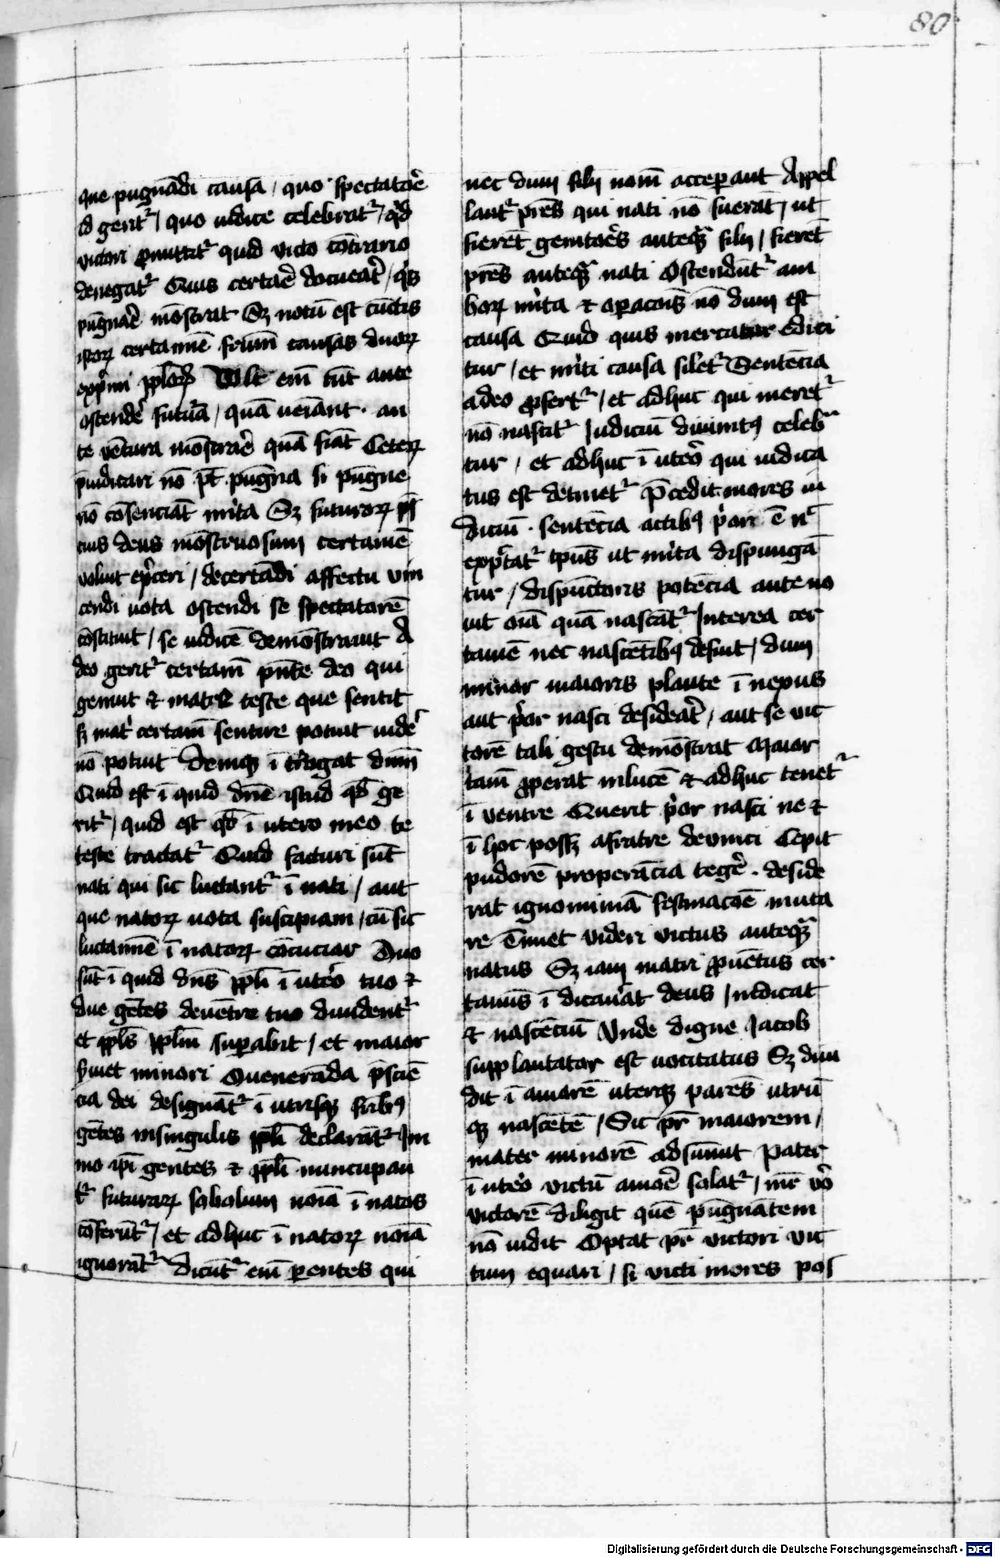 80
que pugnādi causa / quo spectatoēr
id gerit᷑ / quo iudice celebrat᷑ / qᷓd
victori ꝓmittit᷑ quid victo cōtrario
denegat᷑ Quis certaē doceat̄ / qͥs
pūgnaē mōstrat Sꝫ notū est cūctis
istoꝝ certamīe fr̄um causas duoꝝ
exp̄mi pplōꝝ Volt em̄ tūt ante
ostendē futūra / quā ueiant · an
te vētura mōstraē quā fiāt Ceteꝝ
p̄iudicari nō pt̄ pugna si pugne
nō cōsenciāt mīta Sꝫ futuroꝝ
cius deus mōstruosum certamē
voluit exͥceri / decertādi affectu vin
cendi uota ostendi se spectatorē
cōstituit / se iudicē demōstrauit A
deo gerit᷑ certam̄ pn̄te deo qui
gemut ⁊ mater teste que sentit
sꝫ mat̄ certam̄ sentire potuit uidē
nō potuit Deniqꝫ ī t̄rogat dn̄m
Quid est ī quid dn̄e istud qd̄ ge
rit᷑ / quid est qd̄ ī utero meo te
teste tractat᷑ Quid facturi sūt
nati qui sic luctant᷑ ī nati / aut
que natoꝝ uota suscipiam / cū sic
luctamīe ī natoꝝ cōcucior Duo
sūt ī quid dn̄s ppl̄i ī utēo tuo ⁊
due gētes deuētre tuo diuident᷑
et ppl̄s ppl̄m suꝑabit / et maior
ẜuiet minori O ueneranda p̄sciē
cia dei designāt᷑ ī utrisqꝫ fr̄ibꝰ
gētes insingulis ppl̄i declarāt᷑ Im
mo ip̄i gentes ⁊ ppl̄i nuncupan
t᷑ futuraꝝ sobolum noīa ī natos
cōferūt᷑ / et adhuc ī natoꝝ noīa
ignorāt᷑ Dicūt᷑ em̄ ꝑentes qui
nec dum filij nom̄ acceꝑant Appel
lant᷑ pr̄es qui nati nō fuerāt / ut
fierēt genitoēs anteqᷓ filij / fierēt
pr̄es anteqᷓ nati Ostendūt᷑ am
boꝝ mīta ⁊ oꝑacōis nō dum est
causa Quid quis mercatur edici
tur / et mīti causa silet᷑ Sentēcia
adeo ꝓfert᷑ / et adhuc qui meret᷑
nō nascit᷑ Iudiciū diuinitꝰ celeb
tur / et adhuc ī utēo qui iudica
tus est detinet᷑ p̄cedit mores iu
dicium · sentēcia actibꝰ p̄or ē n̄
expͨtat᷑ tp̄us ut mīta dispungā
tur / dispūctoris potēcia ante no
uit oīa quā nascāt᷑ Interea cer
tamē nec nascētibꝰ desiut / dum
minor maioris plante ī nepus
aut p̄or nasci desideat̄ / aut se vic
torē tali gestu demōstrat Maior
tam̄ ꝓperat inlucē ⁊ adhuc tenet᷑
ī ventre Querit p̄or nasci ne ⁊
ī hoc possꝫ afratre deuinci Cepit
pudorē properācia tegē · deside
rat ignominiā festinacōe muta
re Timet videri victus anteqᷓ
natus Sꝫ iam matri ꝓuētus cer
tamīs ī dicauāt deus / indicat
⁊ nascēciū Vnde digne Iacob
supplantator est uocitatus Sꝫ diui
dit ī amorē uterqꝫ pares utrū
qꝫ nascētē / Sic pr̄ maiorem /
mater minorē adsumit Pater
ī utēo victū amoē solat᷑ / mr̄ v̄o
victorē diligit quē pūgnātem
nō uidit Optat pr̄ victori vic
tum equari / si victi mores pos
Digitalisierung gefördert durch die Deutsche Forschungsgemeinschaft - DFG